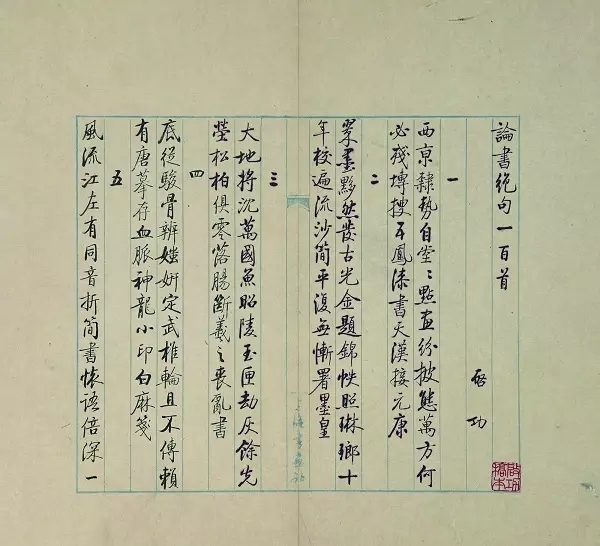 論書絕句一百首
啟功
一
西京隸勢自堂〻點畫紛披態萬方何
必殘塼搜五鳳漆書天漢接元康
二
翠墨黟然發古光金題錦帙照琳瑯十
年校遍流沙簡平復無慚署墨皇
三
大地將沈萬國魚昭陵玉匣劫灰餘先
塋松柏俱零落腸斷羲之喪亂書
四
底從駿骨辨媸妍定武椎輪且不傳賴
有唐摹存血脈神龍小印白麻箋
五
風流江左有同音折簡書懷語倍深一